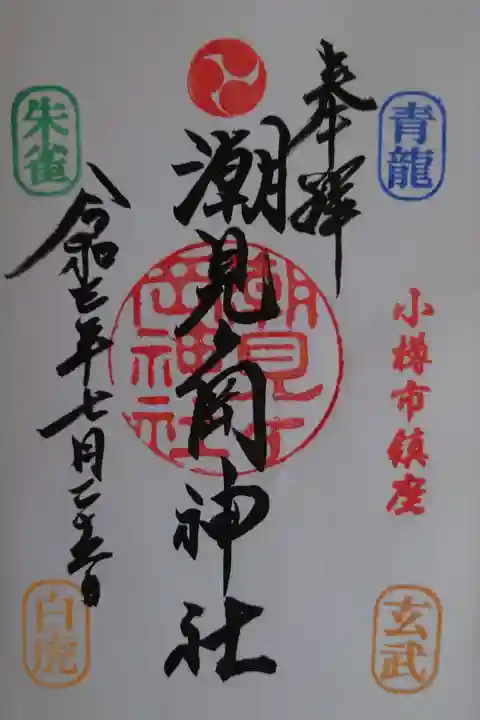 奉拝
青龍
小樽市鎮座
玄武
潮見ヶ岡神社
潮見ヶ岡神社
朱雀
令和三年七月二十五日
白虎